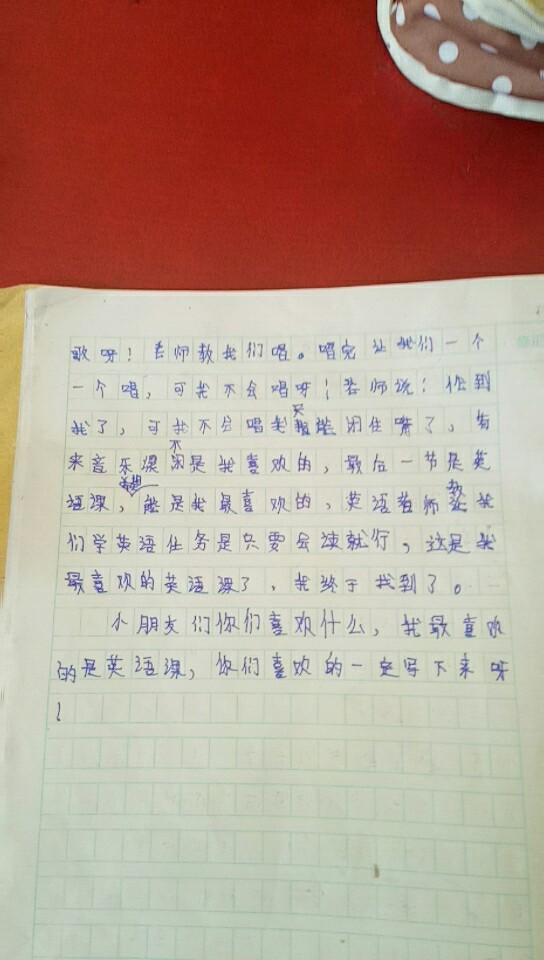 歌呀！老师教我们唱。唱完让我们一个
一个唱，可我不会唱呀！老师说！你到
我了，可我不会唱我只能闭住嘴了，看
来音乐课不是我喜欢的，最后一节是英
语课，能是我最喜欢的，英语老师教我
们学英语任务是只要会读就行，这是我
最喜欢的英语课了，我终于找到了。
小朋友们你们喜欢什么，我最喜欢
的是英语课，你们喜欢的一定写下来呀
！